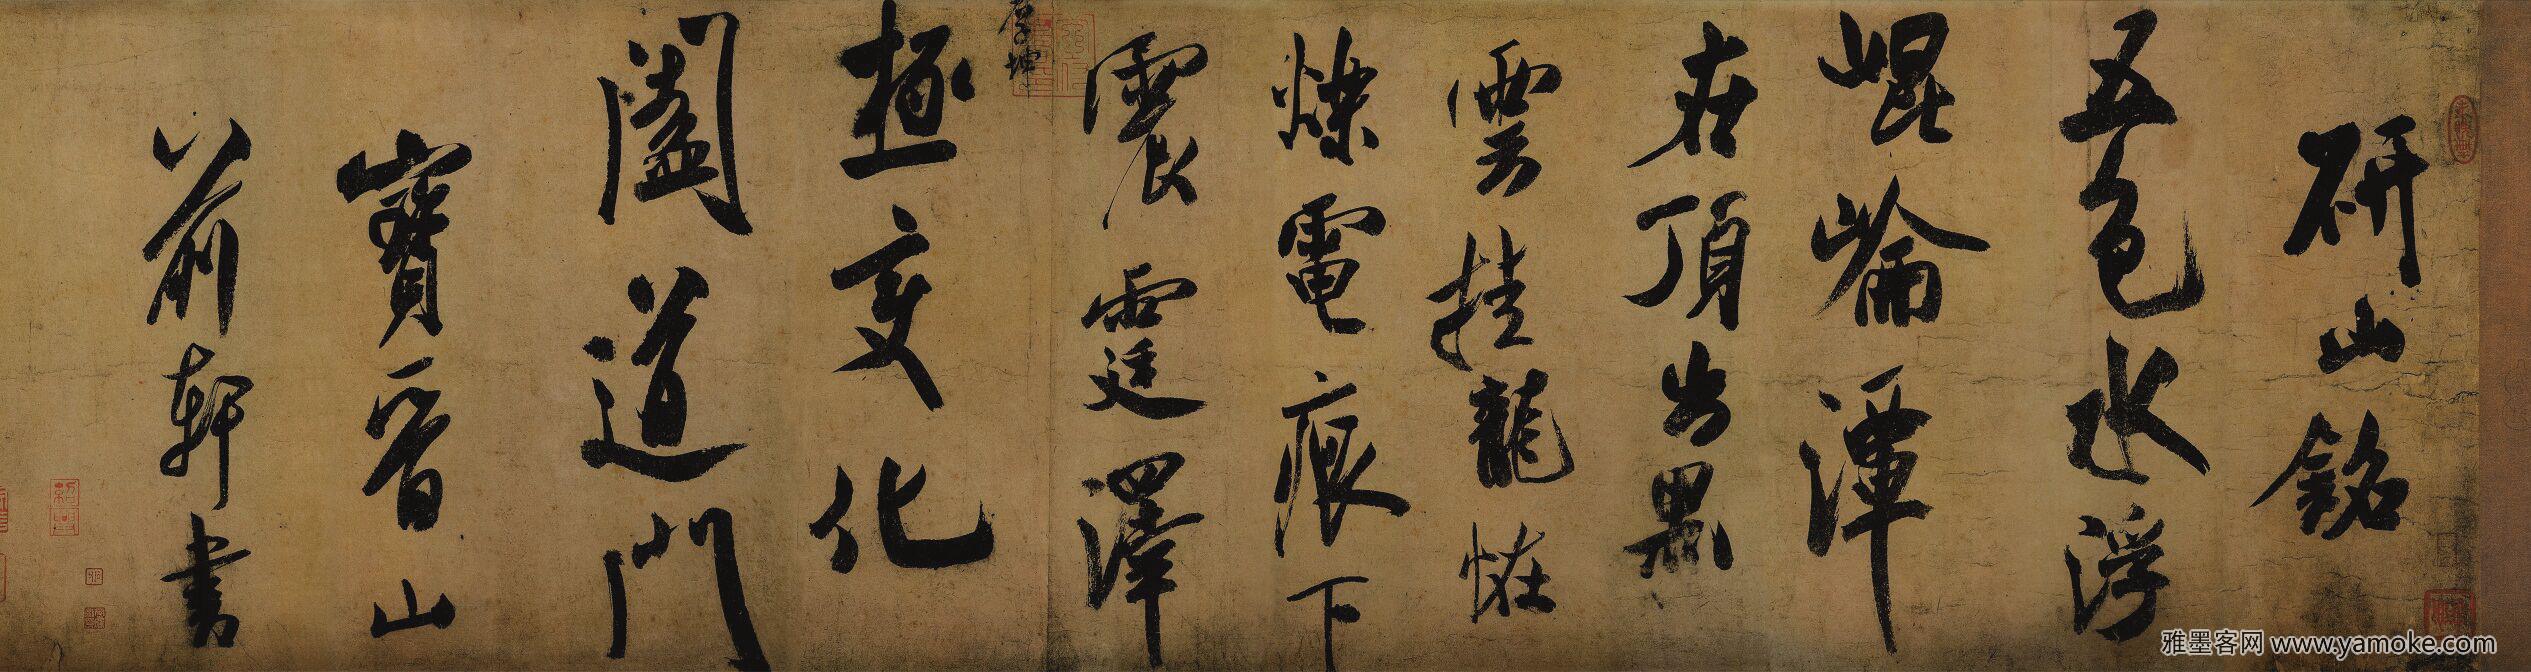 研山銘
五色水浮
崐崘潭
在頂出黑
雲挂龍恠
爍電痕下
震霆澤
厚坤
極变化
闔道門
寶晉山
前軒書
雅墨客网 www.yamoke.com